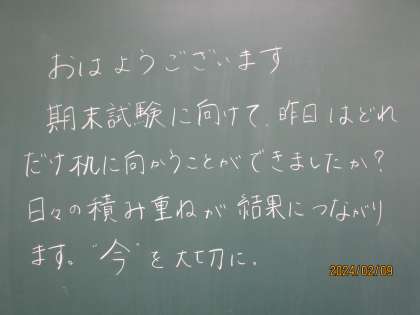 おはようございます
期末試験に向けて、昨日はどれ
だけ机に向かうことができましたか?
日々の積み重ねが結果につながり
ます。"今"を大切に。
2024/02/09